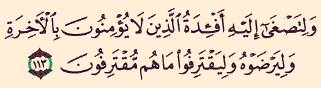 وَلِتَصْغَىٰٓ إِلَيْهِ أَفْـِٔدَةُ ٱلَّذِينَ لَا يُؤْمِنُونَ بِٱلْـَٔاخِرَةِ
وَلِيَرْضَوْهُ وَلِيَقْتَرِفُوا۟ مَا هُم مُّقْتَرِفُونَ ١١٣